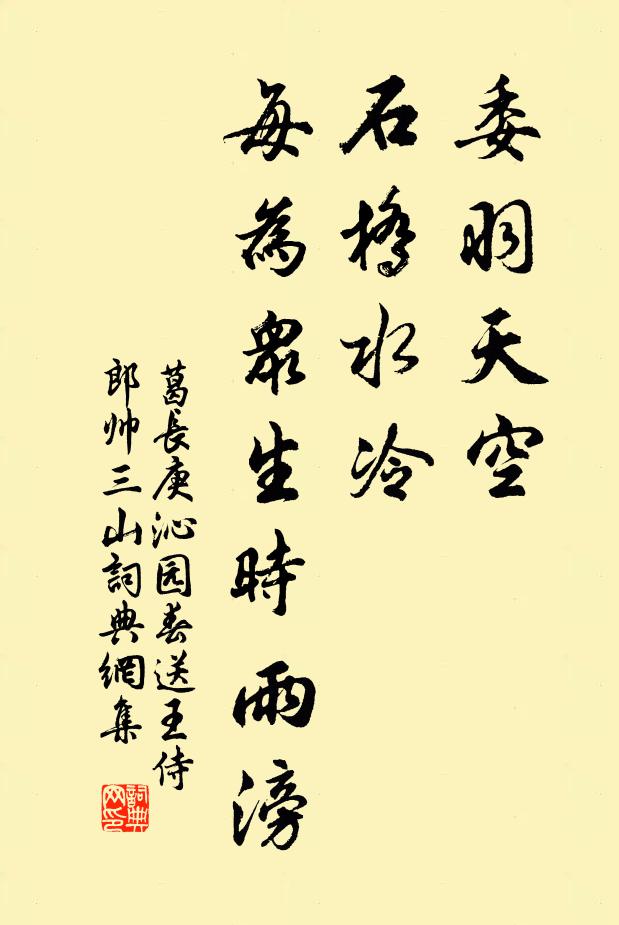 委羽天空
石橋水冷
每為眾生時雨滂
葛長庚沁园春送王侍
郎帅三山詞典網集
詞典网印